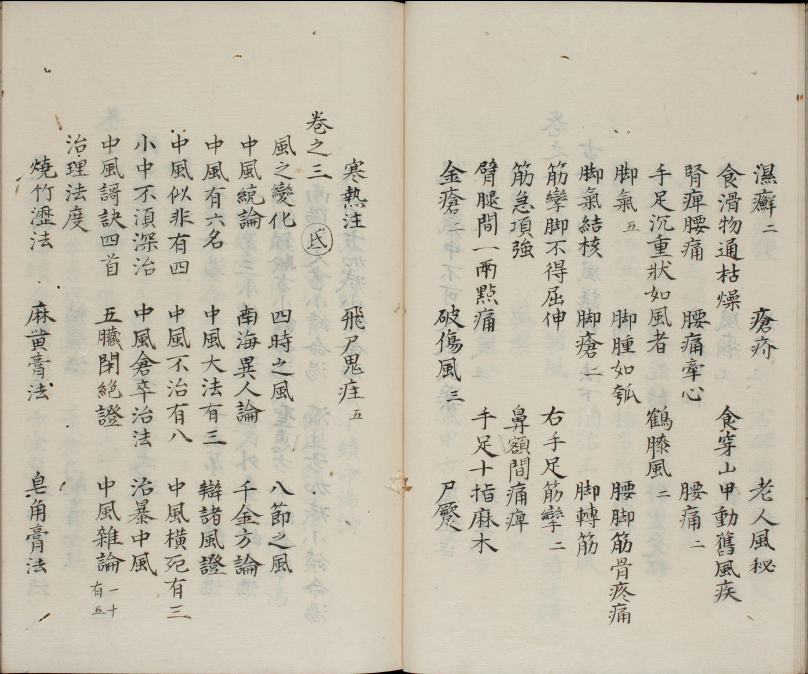 濕癬二　瘡疥　老人風秘
食滑物通枯燥　食穿山甲動舊風疾
腎痺腰痛　腰痛牽心　腰痛二
手足沉重狀如風者　鶴膝風二
脚氣五　脚腫如瓠　腰脚筋骨疼痛
脚氣結核　脚瘡二　脚轉筋
筋攣脚不得屈伸　右手足筋攣二
筋急項強　鼻額間痛痺
臂腿間一兩點痛　手足十指麻木
金瘡二　破傷風三　尸厥
寒熱注　飛尸鬼疰五
卷之三　氐
風之變化　四時之風　八節之風
中風統論　南海異人論　千金方論
中風有六名　中風大法有三　辯諸風證
中風似非有四　中風不治有八　中風橫死有三
小中不湏深治　中風倉卒治法　治暴中風
中風謌訣四首　五臟閉絶證　中風雜論一十有五
治理法度
燒竹瀝法　麻黄膏法　皂角膏法